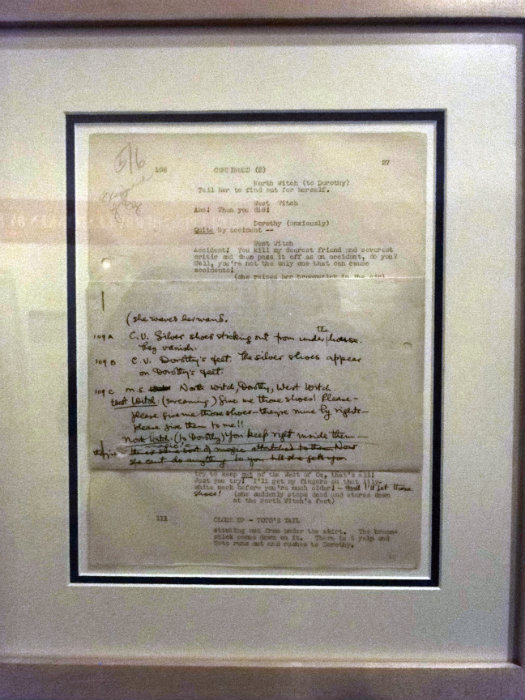 5/6
108 CONTINUED (2) 27
North Witch (to Dorothy)
Tell her to find out for herself.
West Witch
Aha! Then you did!
Dorothy (anxiously)
Quite by accident --
West Witch
Accident! You kill my dearest friend and severest
critic and then pass it off as an accident, do you?
Well, you're not the only one that can cause
accidents!
(she raises her broomstick in the air)
(she waves her wand.
109 A C.U. Silver shoes sticking out from under the house.
They vanish.
109 B C.U. Dorothy's feet. The silver shoes appear
on Dorothy's feet
109 C M.S. North Witch, Dorothy, West Witch
West Witch: (screaming) Give me those shoes! Please-
please give me those shoes - they're mine by rights -
please give them to me!!
North Witch: (to Dorothy) You keep right inside them -
there is a sort of magic attached to them Now
she can't do anything to you till she gets you
try to keep out of the West of Oz, that's all!
Just you try! I'll get my fingers on that lily
white neck before you're much older! - and I'll get those
shoes! (she suddenly stops dead and stares down
at the North Witch's feet)
111 CLOSE UP - TOTO'S TAIL
sticking out from under the skirt. The broom-
stick comes down on it. There is a yelp and
Toto runs out and rushes to Dorothy.